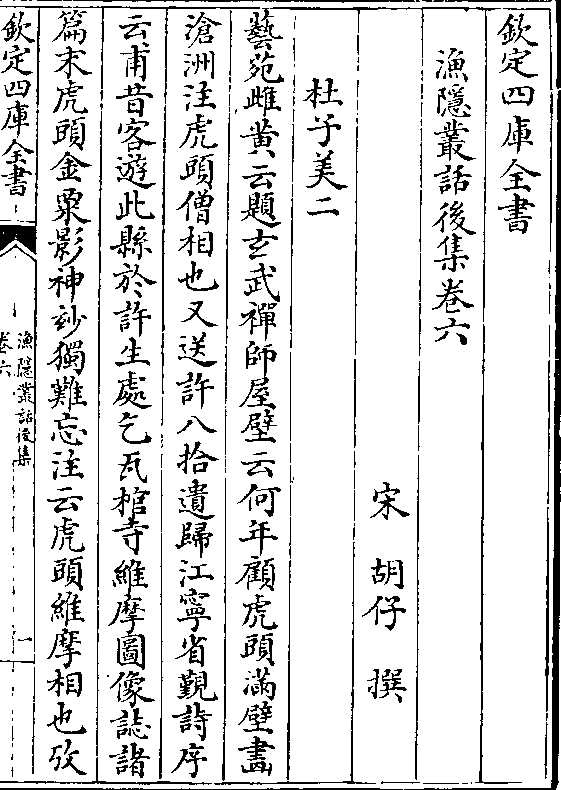 欽定四庫全書
漁隱叢話後集卷六
宋 胡仔 撰
杜子美二
藝苑雌黄云題玄武禪師屋壁云何年顧虎頭滿壁畫
滄洲注虎頭僧相也又送許八拾遺歸江寧省覲詩序
云甫昔客遊此縣於許生處乞瓦棺寺維摩圖像誌諸
篇末虎頭金粟影神妙獨難忘注云虎頭維摩相也攷
欽定四庫全書
漁隱叢話後集
卷六
一